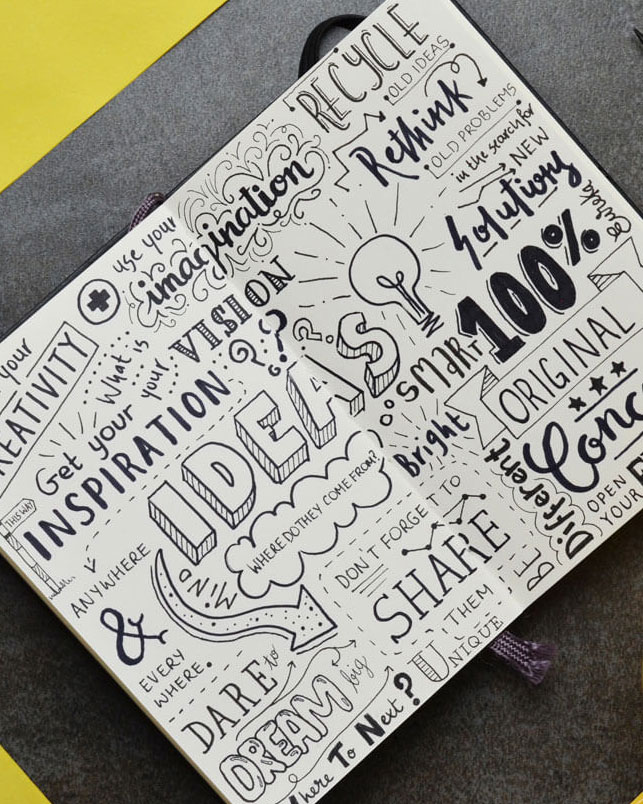 RECYCLE
OLD IDEAS
Rethink
OLD PROBLEMS
in the search for
NEW
Solutions
Eureka
100%
use your
imagination
What is
your
VISION
??
your
REATIVITY
Get your
INSPIRATION
THIS WAY
IDEAS
?
SMART
ORIGINAL
Conc
Bright
BE
Different
OPEN
YOUR
WHERE DO THEY COME FROM?
MIND
ANYWHERE
&
EVERY
WHERE.
DON'T FORGET TO
SHARE
THEM
UNIQUE
DARE to
DREAM big
Where To Next?